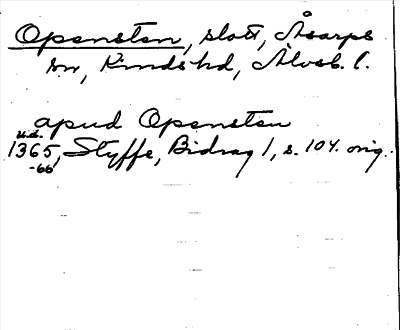 Opensten, slott, Åsarps
sn, Kinds hd, Älvsb. l.
apud Opensten
u.d.
1365, Styffe, Bidrag 1, s. 104. orig.
-66